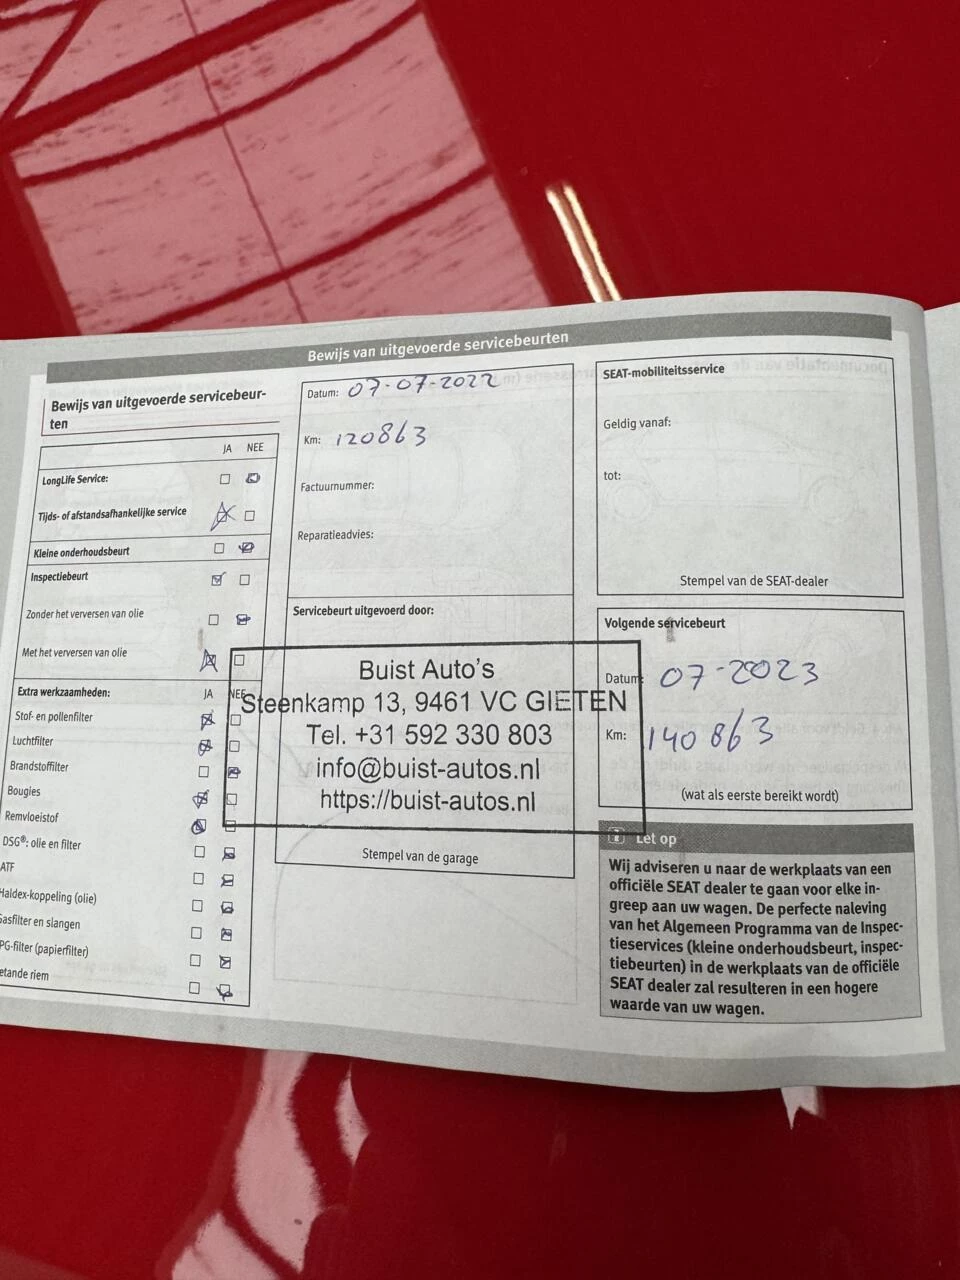 Bewijs van uitgevoerde servicebeurten
Bewijs van uitgevoerde servicebeur-
ten
JA NEE
LongLife Service:
Tijds- of afstandsafhankelijke service
Kleine onderhoudsbeurt
Inspectiebeurt
Zonder het verversen van olie
Met het verversen van olie
Extra werkzaamheden: JA NEE
Stof- en pollenfilter
Luchtfilter
Brandstoffilter
Bougies
Remvloeistof
DSG®: olie en filter
ATF
Haldex-koppeling (olie)
Gasfilter en slangen
PG-filter (papierfilter)
etande riem
Datum: 07-07-2022
Km: 120863
Factuurnummer:
Reparatieadvies:
Servicebeurt uitgevoerd door:
Buist Auto's
Steenkamp 13, 9461 VC GIETEN
Tel. +31 592 330 803
info@buist-autos.nl
https://buist-autos.nl
Stempel van de garage
SEAT-mobiliteitsservice
Geldig vanaf:
tot:
Stempel van de SEAT-dealer
Volgende servicebeurt
Datum: 07-2023
Km: 140863
(wat als eerste bereikt wordt)
Let op
Wij adviseren u naar de werkplaats van een
officiële SEAT dealer te gaan voor elke in-
greep aan uw wagen. De perfecte naleving
van het Algemeen Programma van de Inspec-
tieservices (kleine onderhoudsbeurt, inspec-
tiebeurten) in de werkplaats van de officiële
SEAT dealer zal resulteren in een hogere
waarde van uw wagen.